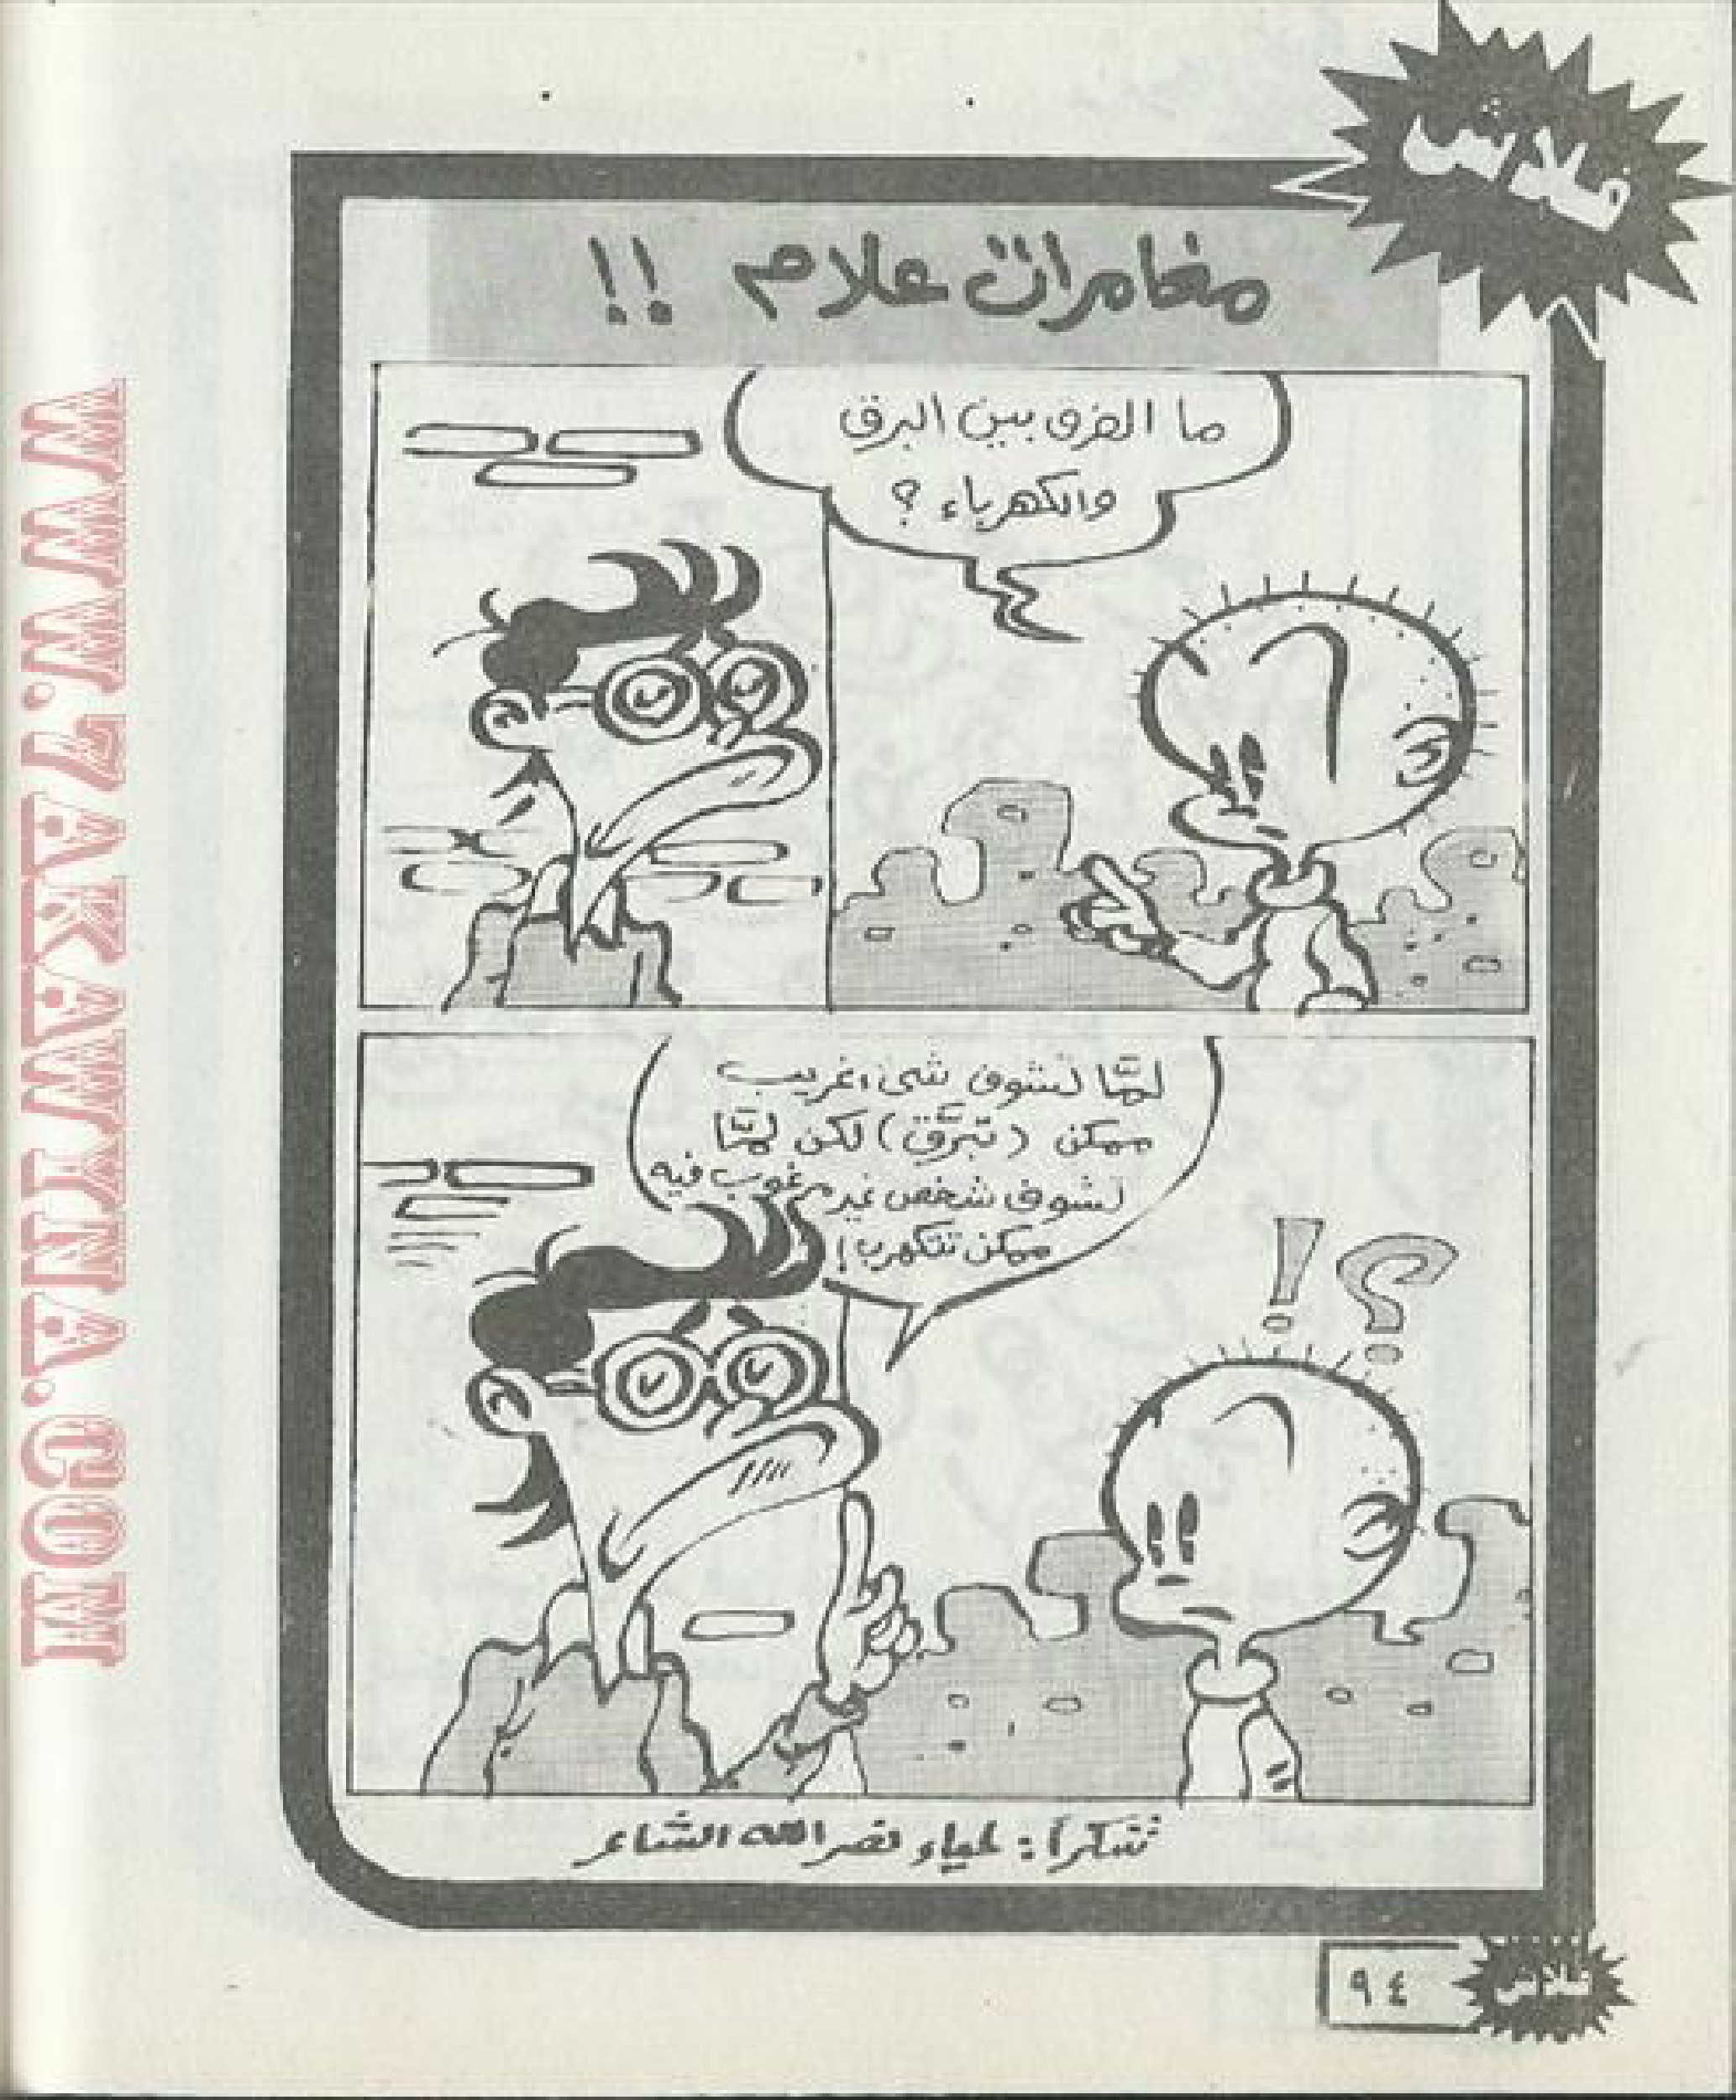 فلاش
مغامرات علام !!
ما الفرق بين البرق
والكهرباء ؟
لمَّا تشوف شىء غريب
ممكن (تبرَّق) لكن لمَّا
تشوف شخص غير مرغوب فيه
ممكن تتكهرب!
؟!
شكراً : لمياء نصر الله الشاعر
٩٤
فلاش
WWW.7AKAWINA.COM